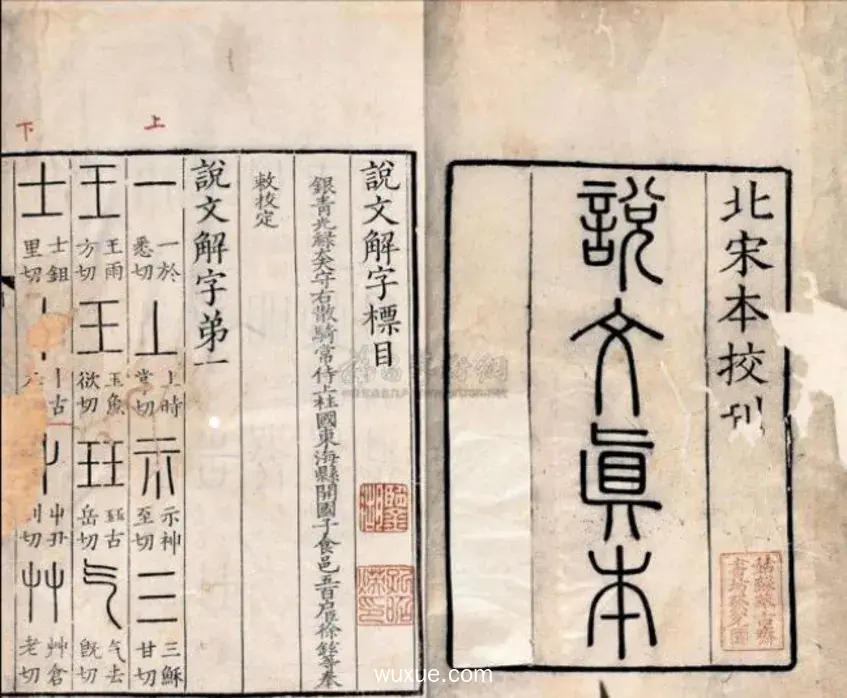 北宋本挍刊
說文眞本
說文解字標目
銀青光祿大夫守右散騎常侍上柱國東海縣開國子食邑五百戶臣徐鉉等奉
敕挍定
說文解字弟一
上
一 一於悉切 丄 上時掌切 示 示神至切 三 三穌甘切
王 王雨方切 王 玉魚欲切 玨 玨古岳切 气 气去旣切
下
士 士鉏里切 丨 丨古 屮 屮丑列切 艸 艸倉老切
wuxue.com